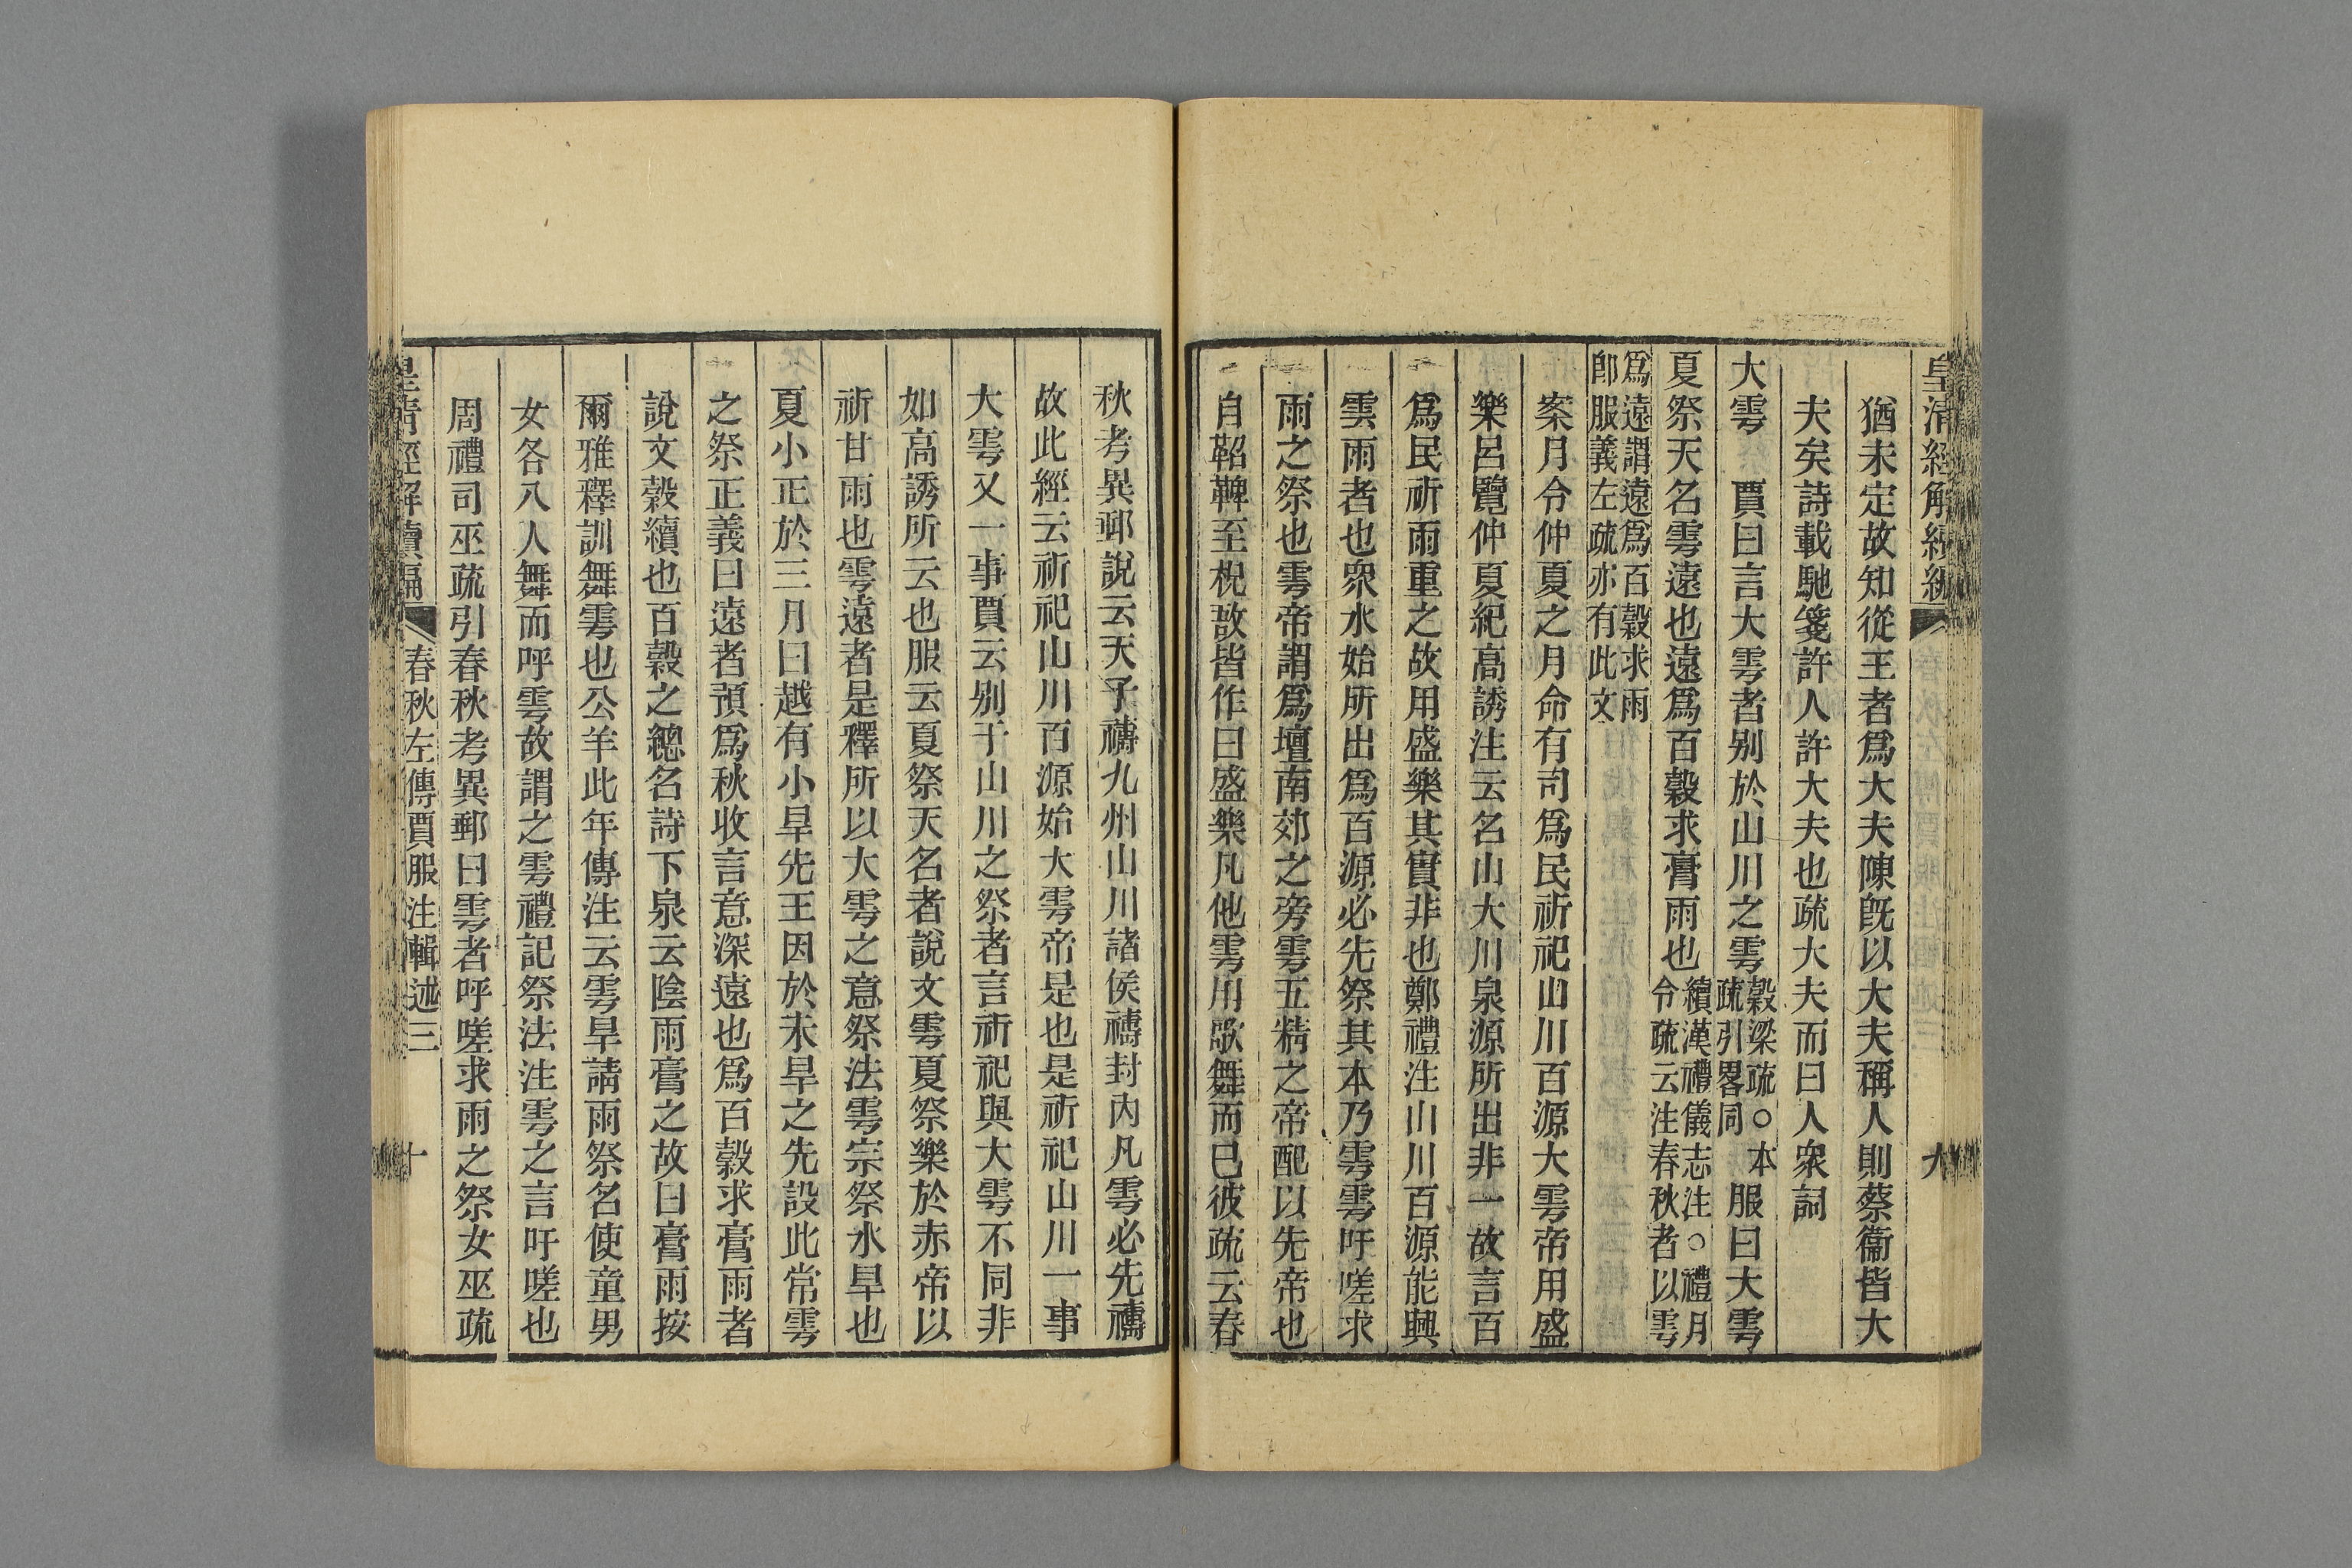 皇清經解續編 九
猶未定故知從王者爲大夫陳旣以大夫稱人則蔡衞皆大
夫矣詩載馳箋許人許大夫也疏大夫而曰人衆詞
大雩 賈曰言大雩者别於山川之雩穀梁疏○本疏引畧同 服曰大雩
夏祭天名雩遠也遠爲百穀求膏雨也續漢禮儀志注○禮月令疏云注春秋者以雩
爲遠謂遠爲百穀求雨
卽服義左疏亦有此文
案月令仲夏之月命有司爲民祈祀山川百源大雩帝用盛
樂呂覽仲夏紀高誘注云名山大川泉源所出非一故言百
爲民祈雨重之故用盛樂其實非也鄭禮注山川百源能興
雲雨者也衆水始所出爲百源必先祭其本乃雩雩吁嗟求
雨之祭也雩帝謂爲壇南郊之旁雩五精之帝配以先帝也
自鞀鞞至柷敔皆作曰盛樂凡他雩用歌舞而已彼疏云春
秋考異郵說云天子禱九州山川諸侯禱封內凡雩必先禱
故此經云祈祀山川百源始大雩帝是也是祈祀山川一事
大雩又一事賈云别于山川之祭者言祈祀與大雩不同非
如高誘所云也服云夏祭天名者說文雩夏祭樂於赤帝以
祈甘雨也雩遠者是釋所以大雩之意祭法雩宗祭水旱也
夏小正於三月曰越有小旱先王因於未旱之先設此常雩
之祭正義曰遠者預爲秋收言意深遠也爲百穀求膏雨者
說文穀續也百穀之總名詩下泉云陰雨膏之故曰膏雨按
爾雅釋訓舞雩也公羊此年傳注云雩旱請雨祭名使童男
女各八人舞而呼雩故謂之雩禮記祭法注雩之言吁嗟也
周禮司巫疏引春秋考異郵曰雩者呼嗟求雨之祭女巫疏
皇清經解續編 春秋左傳賈服注輯述三 十